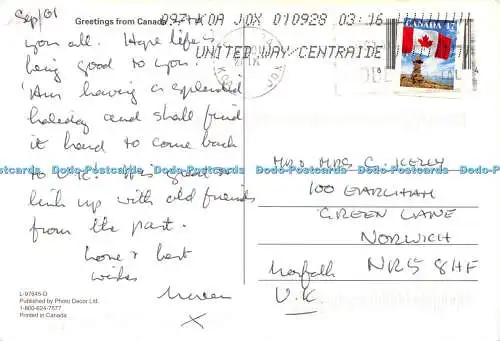 Sep/01
Greetings from Canada
0974 K0A J0X 010928 03:16
UNITED WAY/CENTRAIDE
CANADA 47
you all. Hope life is
being good to you.
'Am having a splendid
holiday and shall find
it hard to come back
to U.K. It is great to
link up with old friends
from the past.
Love & best
wishes
X
MR & MRS C. KERRY
100 EARLHAM
GREEN LANE
NORWICH
Norfolk NR5 8HF
U.K
L-97645-D
Published by Photo Decor Ltd.
1-800-624-7577
Printed in Canada
Dodo-Postcards Dodo-Postcards Dodo-Postcards Dodo-Postcards